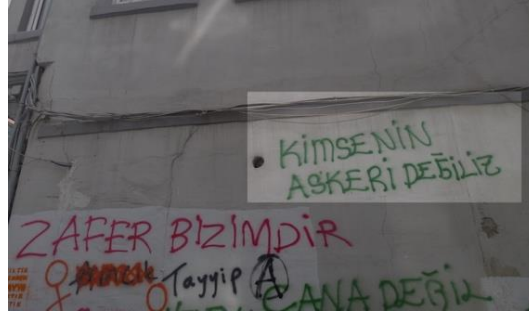 KİMSENİN
ASKERİ DEĞİLİZ
ZAFER BIZIMDİR
Tayyip A
CANA DEĞİL